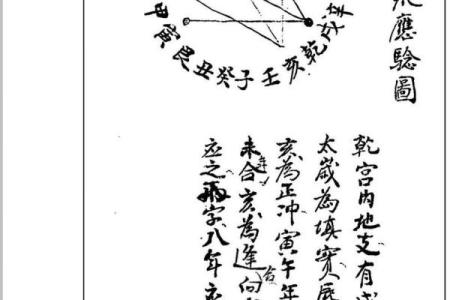 應驗圖
甲寅艮丑癸子壬亥乾戌辛
乾宮內地支有
太歲為填實
亥為正冲寅午年
未年合亥為逢合向
应之字八年